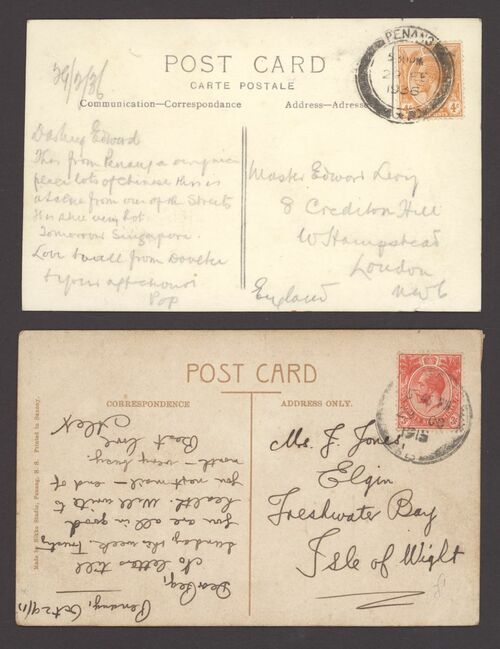 POST CARD
CARTE POSTALE
Communication—Correspondance
Address—Adresse
PENANG
29 FE
1936
4c
CENTS
29/2/36
Darling Edward
This from Penang a
place lots of Chinese this is
a scene from one of the Streets
It is also very hot
Tomorrow Singapore.
Love to all from
Pop
Master Edward Levy
8 Crediton Hill
W Hampstead
London
England NW6
POST CARD
CORRESPONDENCE
ADDRESS ONLY.
1915
Made by Nikko Studio, Penang, S. S. Printed in Saxony.
Penang, Oct 29/15
Dear Reg,
No letters till
Sunday this week. Trusting
you are all in good
health. Will write to
you next mail – end of
month – very busy.
Best love
Alex
J. Jones,
Elgin
Freshwater Bay
Isle of Wight